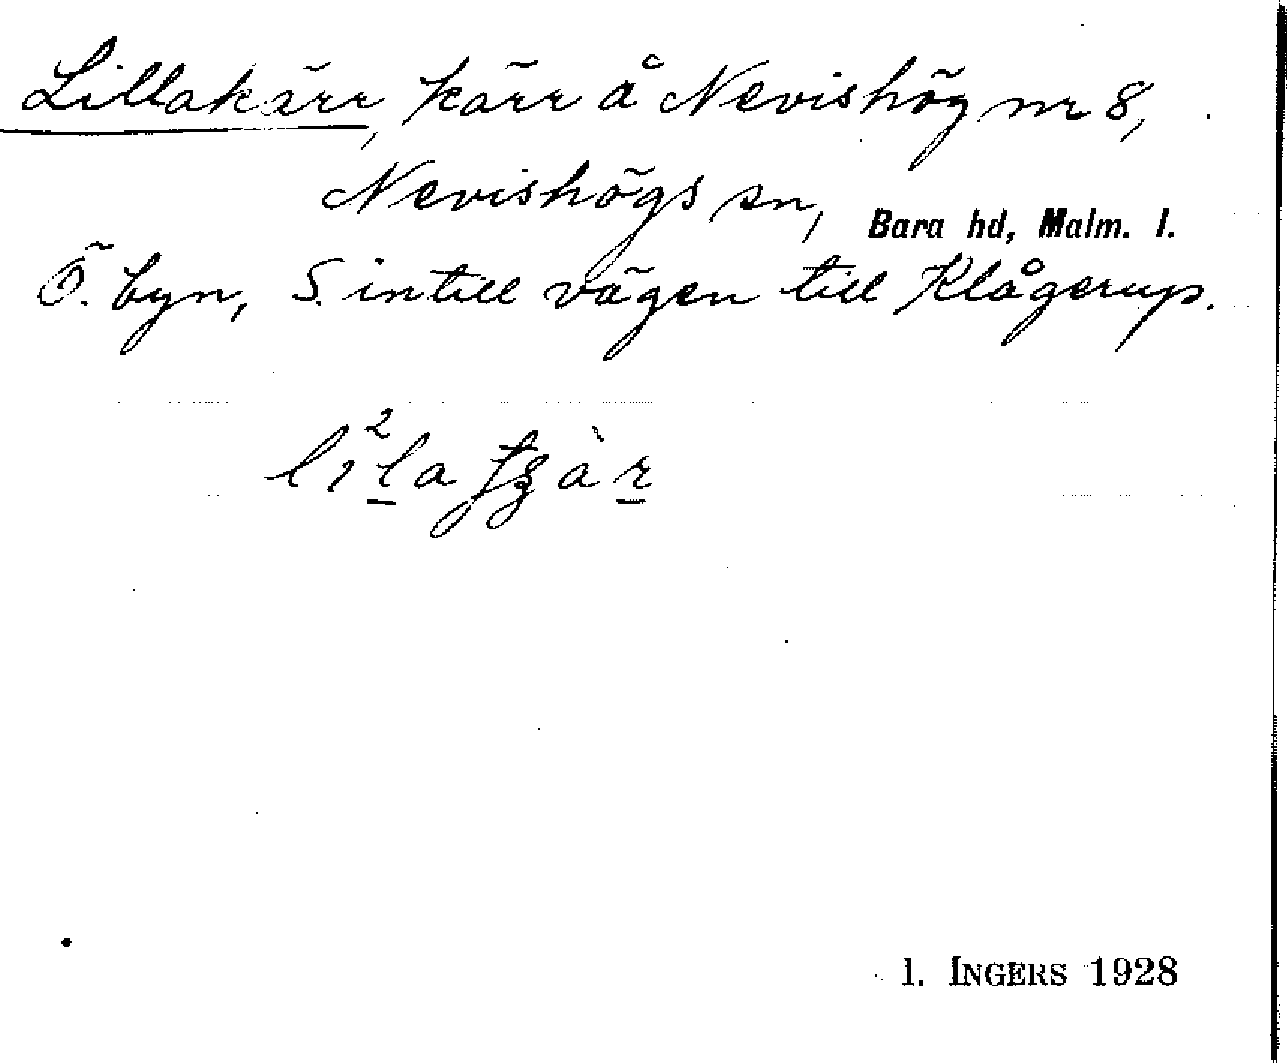 Lillakärr, kärr å Nevishög nr 8,
Nevishögs sn, Bara hd, Malm. l.
Ö. byn, S. intill vägen till Klågerup.
I. INGERS 1928